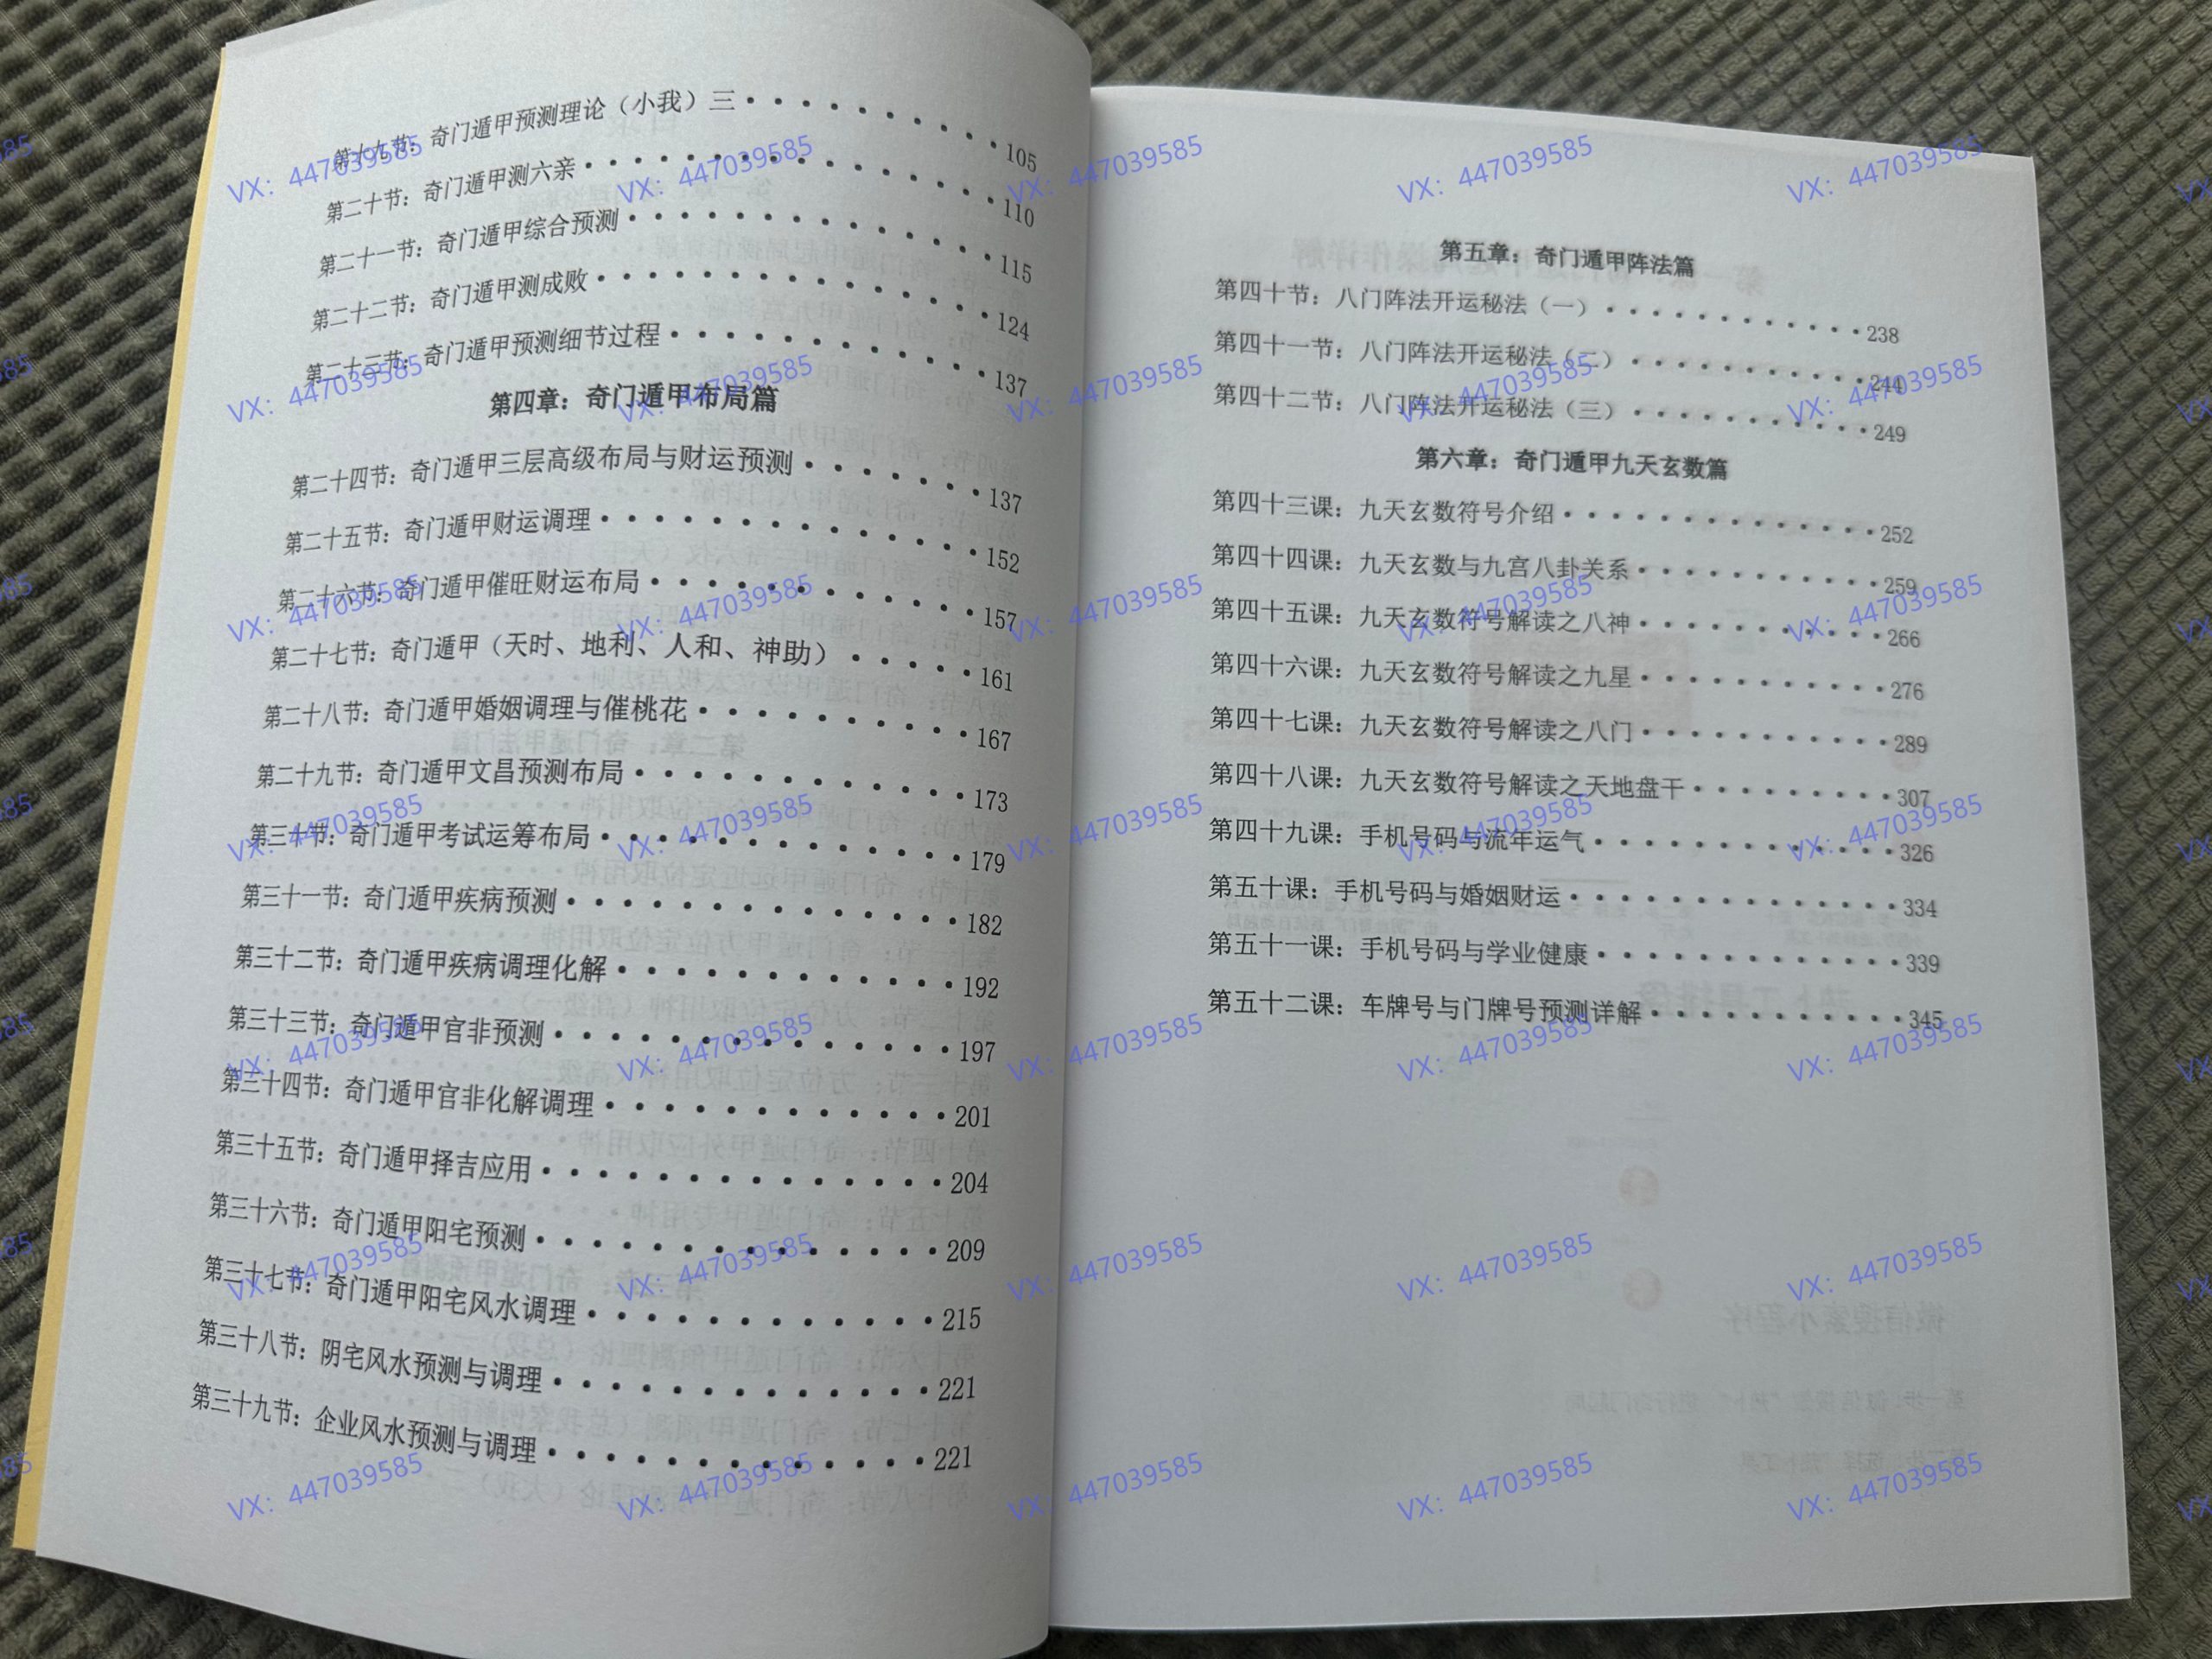 第十九节：奇门遁甲预测理论（小我）三············105
第二十节：奇门遁甲测六亲················110
第二十一节：奇门遁甲综合预测··············115
第二十二节：奇门遁甲测成败···············124
第二十三节：奇门遁甲预测细节过程············137
第四章：奇门遁甲布局篇
第二十四节：奇门遁甲三层高级布局与财运预测·······137
第二十五节：奇门遁甲财运调理··············152
第二十六节：奇门遁甲催旺财运布局············157
第二十七节：奇门遁甲（天时、地利、人和、神助）·····161
第二十八节：奇门遁甲婚姻调理与催桃花··········167
第二十九节：奇门遁甲文昌预测布局············173
第三十节：奇门遁甲考试运筹布局·············179
第三十一节：奇门遁甲疾病预测··············182
第三十二节：奇门遁甲疾病调理化解············192
第三十三节：奇门遁甲官非预测··············197
第三十四节：奇门遁甲官非化解调理············201
第三十五节：奇门遁甲择吉应用··············204
第三十六节：奇门遁甲阳宅预测··············209
第三十七节：奇门遁甲阳宅风水调理············215
第三十八节：阴宅风水预测与调理·············221
第三十九节：企业风水预测与调理·············221
第五章：奇门遁甲阵法篇
第四十节：八门阵法开运秘法（一）···········238
第四十一节：八门阵法开运秘法（二）··········244
第四十二节：八门阵法开运秘法（三）··········249
第六章：奇门遁甲九天玄数篇
第四十三课：九天玄数符号介绍·············252
第四十四课：九天玄数与九宫八卦关系··········259
第四十五课：九天玄数符号解读之八神··········266
第四十六课：九天玄数符号解读之九星··········276
第四十七课：九天玄数符号解读之八门··········289
第四十八课：九天玄数符号解读之天地盘干········307
第四十九课：手机号码与流年运气············326
第五十课：手机号码与婚姻财运·············334
第五十一课：手机号码与学业健康············339
第五十二课：车牌号与门牌号预测详解··········345
VX：447039585